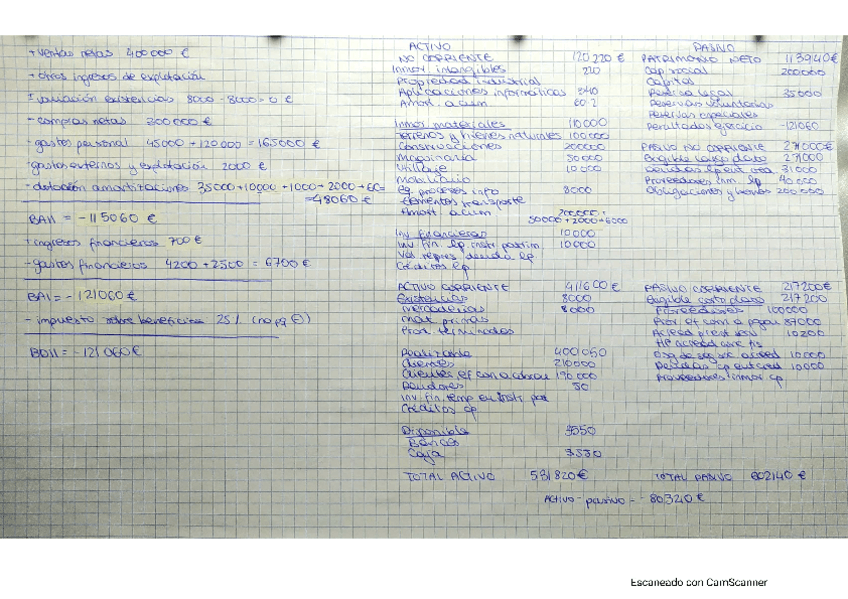 + ventas netas 400000 €
+ otros ingresos de explotación
± variación existencias 8000 - 8000 = 0 €
- compras netas 300000 €
- gastos personal 45000 + 120000 = 165000 €
- gastos externos y explotación 2000 €
- dotación amortizaciones 35000 + 10000 + 1000 + 2000 + 60 =
= 48060 €
BAII = -115060 €
+ ingresos financieros 700 €
- gastos financieros 4200 + 2500 = 6700 €
BAI = -121060 €
- impuesto sobre beneficios 25% (no pq ⊖)
BDII = -121060 €
ACTIVO
NO CORRIENTE 120220 €
Inmov. intangibles 220
Propiedad industrial
Aplicaciones informáticas 840
Amort. acum
Inmov. materiales 110000
Terrenos y bienes naturales 100000
Construcciones 200000
Maquinaria 50000
Utillaje 10000
Mobiliario
Eq. procesos info 8000
Elementos transporte
Amort. acum
50000 + 2000 + 6000
Inv. financieras 10000
Inv. fin. lp instr patrim 10000
Val repres deuda lp
Créditos lp
ACTIVO CORRIENTE 411600 €
Existencias 8000
Mercaderías 8000
Mat primas
Prod. terminados
Realizable 400050
Clientes 210000
Clientes ef com a cobrar 190000
Deudores 50
Inv. fin. temp en instr pat
Créditos cp
Disponible 3550
Bancos
Caja 3550
TOTAL ACTIVO 531820 €
PASIVO
PATRIMONIO NETO 113940 €
Cap social 200000
Capital
Reserva legal 35000
Reservas voluntarias
Reservas especiales
Resultados ejercicio -121060
PASIVO NO CORRIENTE 271000 €
Exigible largo plazo 271000
Deudas lp ent cta 31000
Proveedores inm. lp 40000
Obligaciones y bonos 200000
PASIVO CORRIENTE 217200 €
Exigible corto plazo 217200
Proveedores 100000
Prov. ef. com a pagar 87000
Acreed prest serv 10200
HP acreed conc fis
Org de seg soc acreed 10000
Deudas cp ent cred 10000
Proveedores inmov cp
TOTAL PASIVO 602140 €
Activo - pasivo = -80320 €
Escaneado con CamScanner